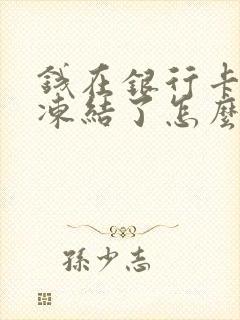 錢在銀行卡
凍結了怎麼
孫少志